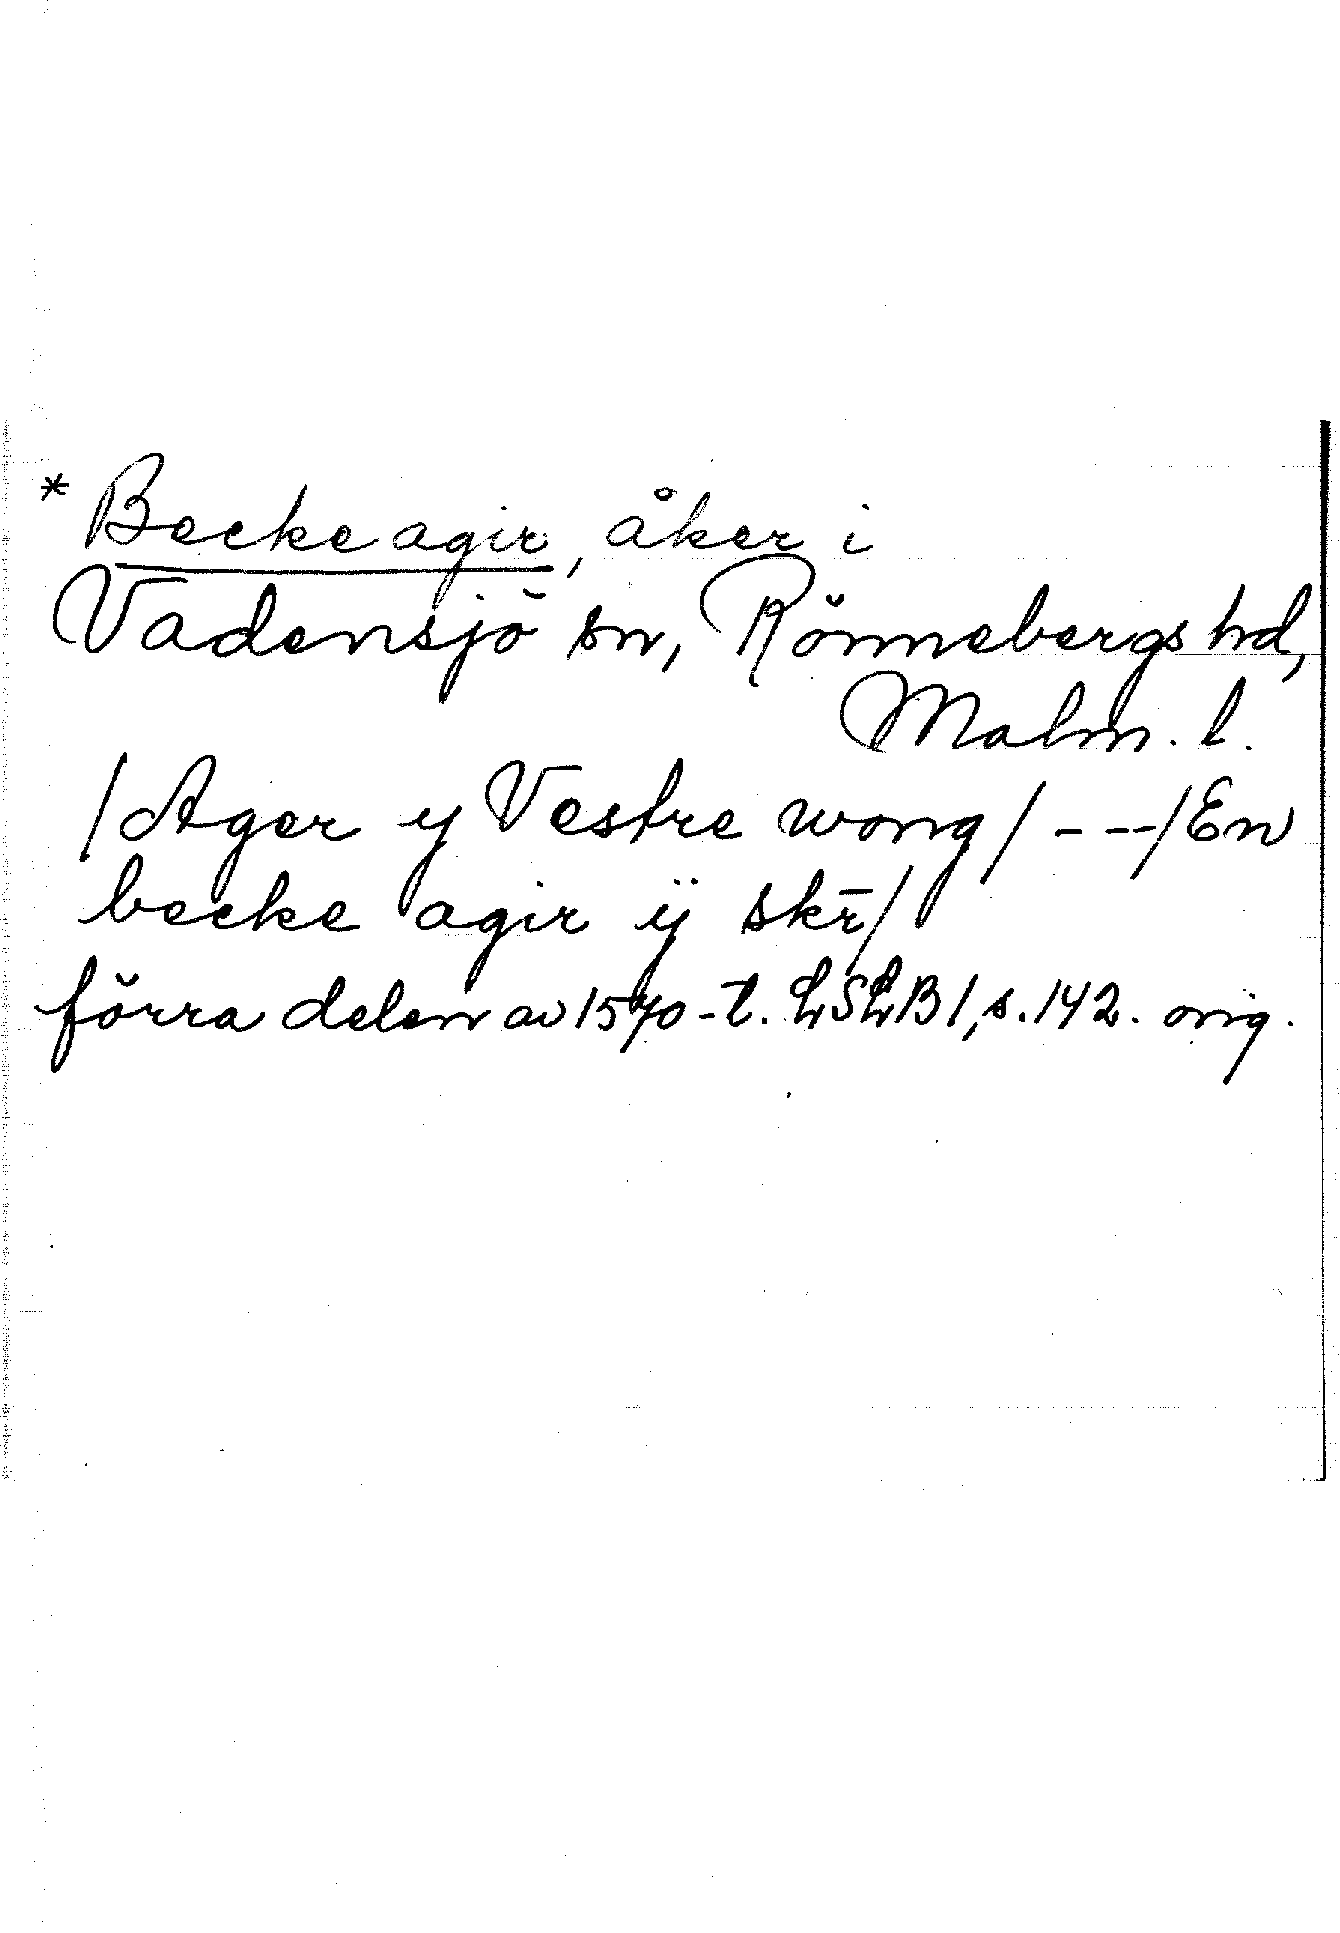 * Becke agir, åker i
Vadensjö sn, Rönnebergs hd,
Malm. l.
/Ager y Vestre wong/ - - -/En
becke agir ÿ skr̄/
förra delen av 1570-t. LSLB 1, s. 142. orig.